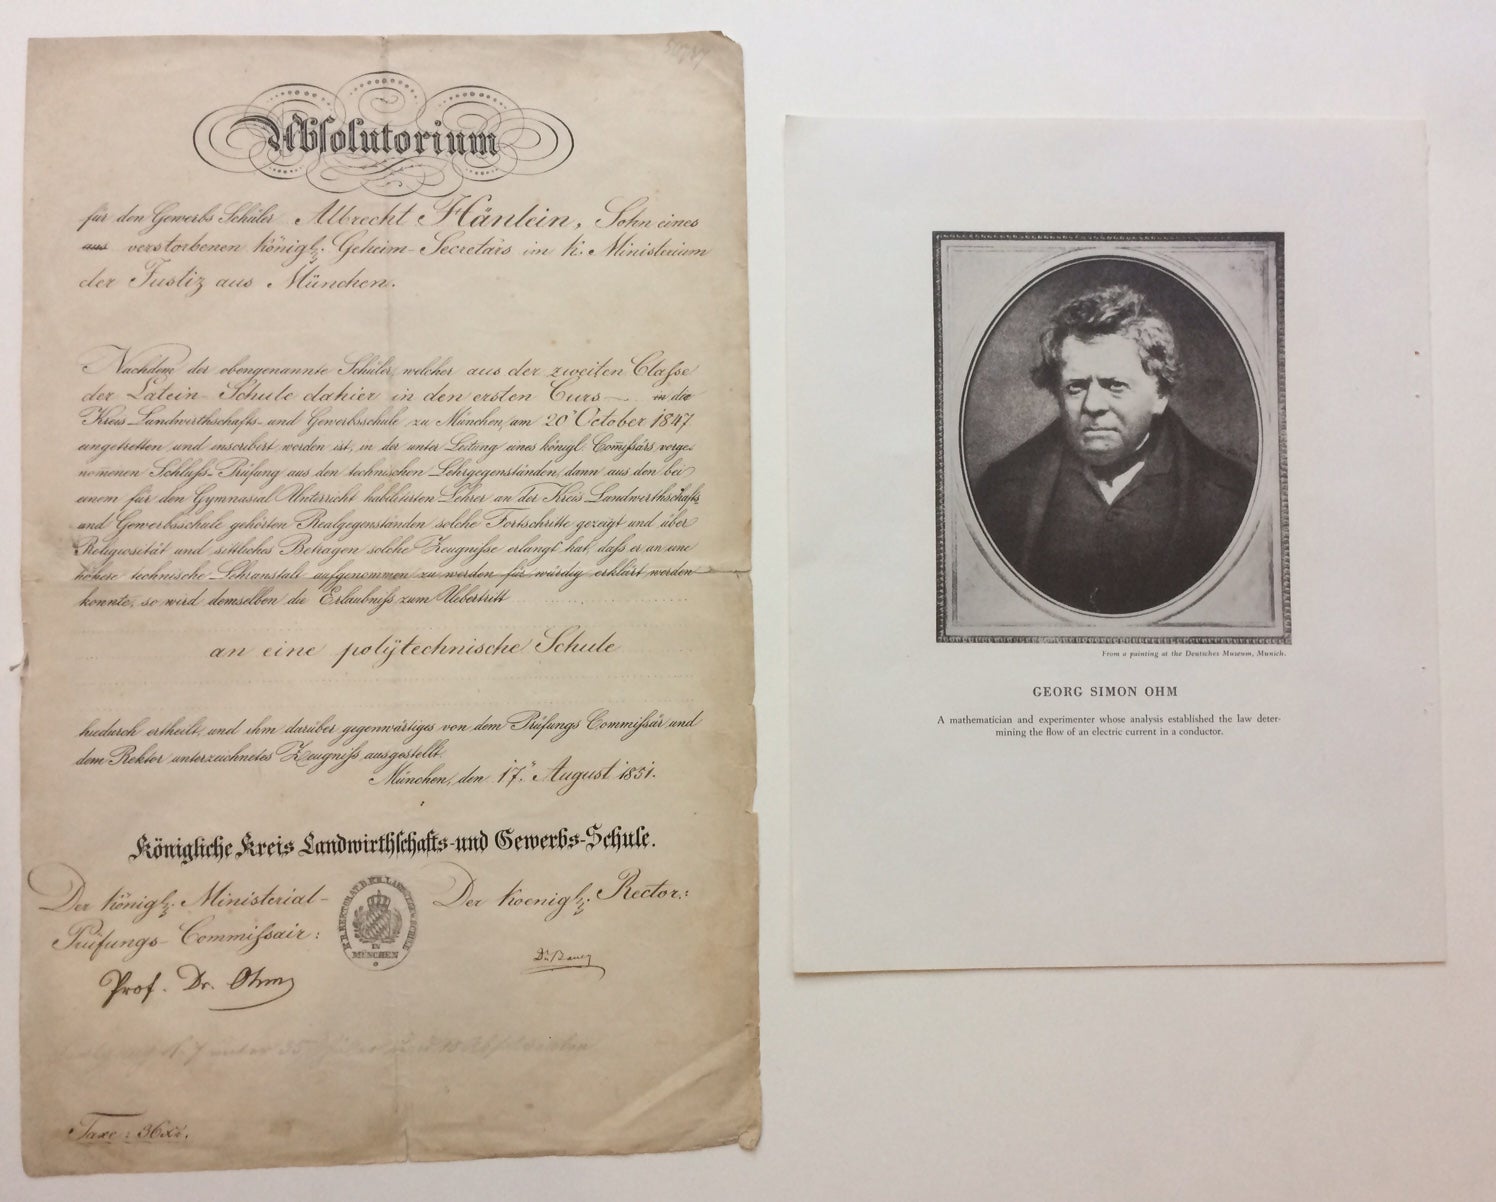 Absolutorium
für den Gewerbs Schüler Albrecht Hänlein, Sohn eines
aus verstorbenen königl: Geheim-Secretärs im k. Ministerium
der Justiz aus München.
Nachdem der obengenannte Schüler, welcher aus der zweiten Classe
der Latein-Schule dahier in den ersten Curs in die
Kreis-Landwirthschafts- und Gewerbsschule zu München am 20 October 1847
eingetretten und inscribirt worden ist, in der unter Leitung eines königl. Com̄issärs vorge-
nom̄enen Schluß-Prüfung aus den technischen Lehrgegenständen, dann aus den bei
einem für den Gymnasial Unterricht habilitirten Lehrer an der Kreis Landwirthschafts
und Gewerbsschule gehörten Realgegenständen solche Fortschritte gezeigt und über
Religiosität und sittliches Betragen solche Zeugnisse erlangt hat, daß er an eine
höhere technische Lehranstalt aufgenommen zu werden für würdig erklärt werden
konnte, so wird demselben die Erlaubniß zum Uebertritt
an eine polytechnische Schule
hiedurch ertheilt, und ihm darüber gegenwärtiges von dem Prüfungs Commißär und
dem Rektor unterzeichnetes Zeugniß ausgestellt.
München, den 17. August 1851.
Königliche Kreis Landwirthschafts- und Gewerbs-Schule.
Der königl: Ministerial-
Prüfungs-Commißair:
Prof. Dr. Ohm
IN
MÜNCHEN
Der koenigl: Rector:
Taxe: 36 xr.
From a painting at the Deutsches Museum, Munich.
GEORG SIMON OHM
A mathematician and experimenter whose analysis established the law deter-
mining the flow of an electric current in a conductor.